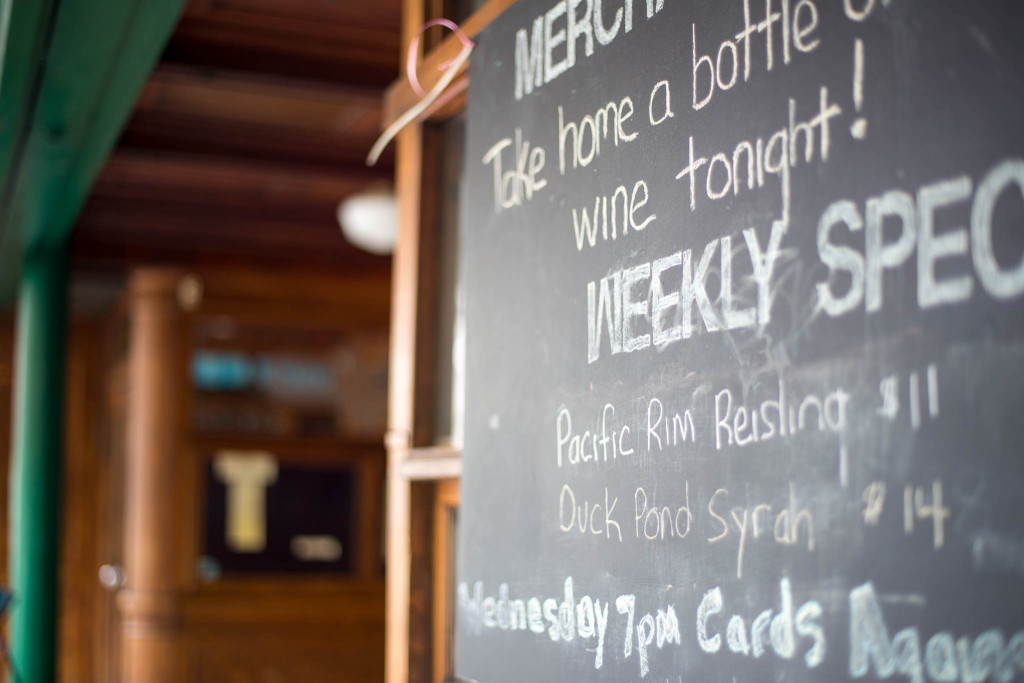 MERCHA
Take home a bottle of
wine tonight!
WEEKLY SPEC
Pacific Rim Reisling $11
Duck Pond Syrah $14
Wednesday 7pm Cards Agains
T